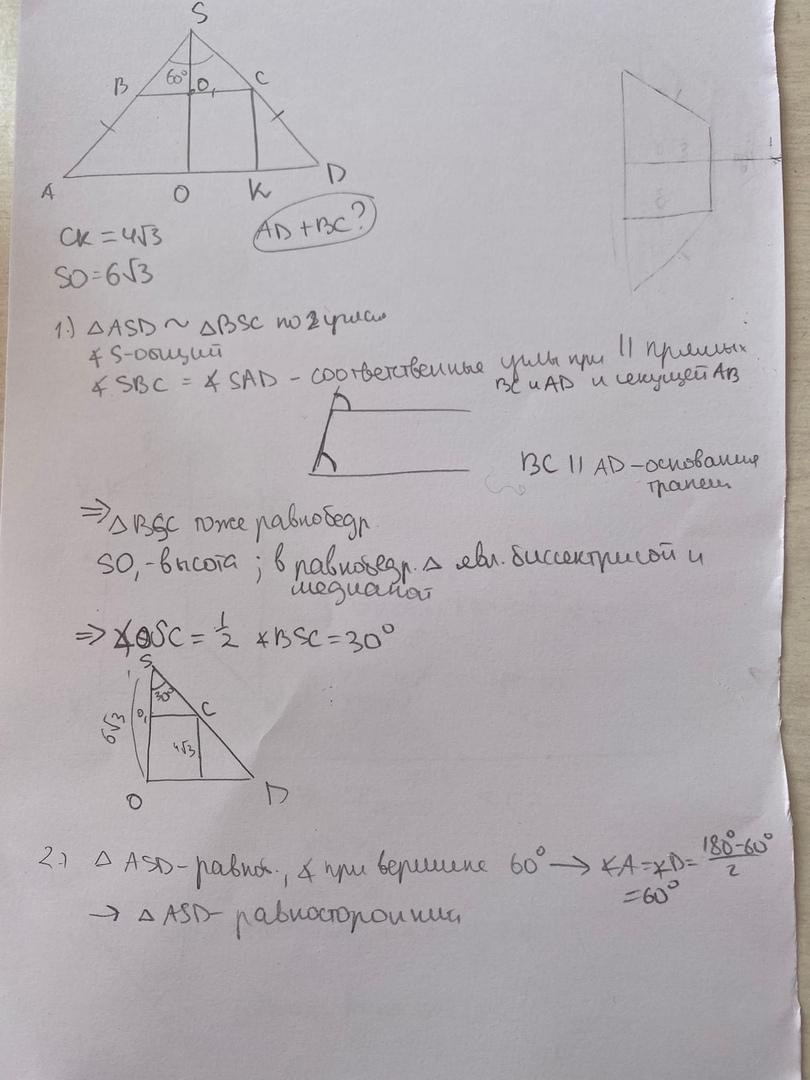 S
60°
B
O₁
C
A
O
K
D
CK = 4√3
AD + BC?
SO = 6√3
1.) △ASD ~ △BSC по 2 углам
∡ S - общий
∡ SBC = ∡ SAD - соответственные углы при || прямых
BC и AD и секущей AB
BC || AD - основания
трапец
⇒ △BSC тоже равнобедр.
SO₁ - высота ; в равнобедр. △ явл. биссектрисой и
медианой
⇒ ∡OSC = 1/2 ∡BSC = 30°
S
30°
O₁
C
6√3
4√3
O
D
2.) △ ASD - равноб., ∡ при вершине 60° → ∡A = ∡D = (180° - 60°)/2
= 60°
→ △ ASD - равносторонний